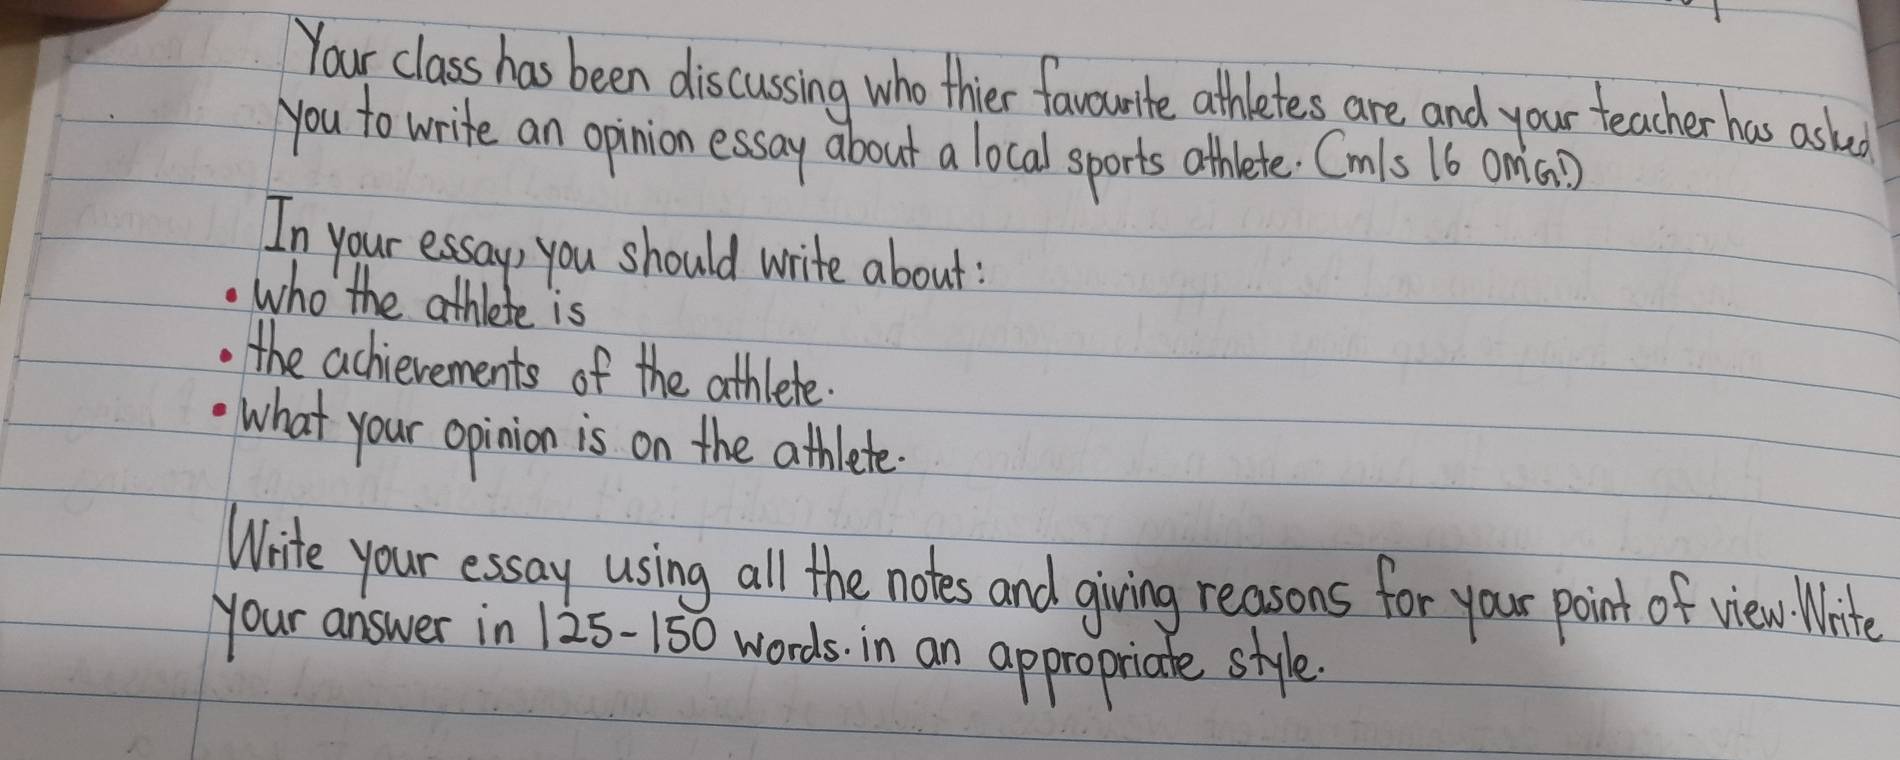 Your class has been discussing who thier favourite athletes are and your teacher has asked
you to write an opinion essay about a local sports athlete. (m/s 16 OMG!)
In your essay, you should write about:
• Who the athlete is
• the achievements of the athlete.
• what your opinion is on the athlete.
Write your essay using all the notes and giving reasons for your point of view. Write
your answer in 125-150 words. in an appropriate style.